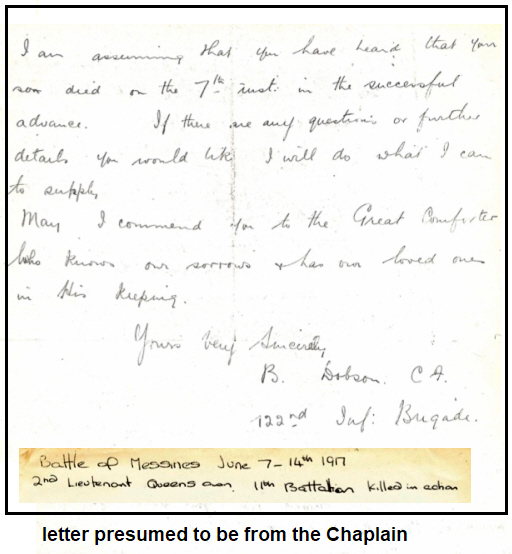 I am assuming that you have heard that your
son died on the 7th inst: in the successful
advance. If there are any questions or further
details you would like I will do what I can
to supply
May I commend you to the Great Comforter
who knows our sorrows & has our loved ones
in His keeping.
Yours very Sincerely
B. Dobson. C.A.
122nd Inf: Brigade.
Battle of Messines June 7-14th 1917
2nd Lieutenant Queens own, 11th Battalion Killed in action
letter presumed to be from the Chaplain